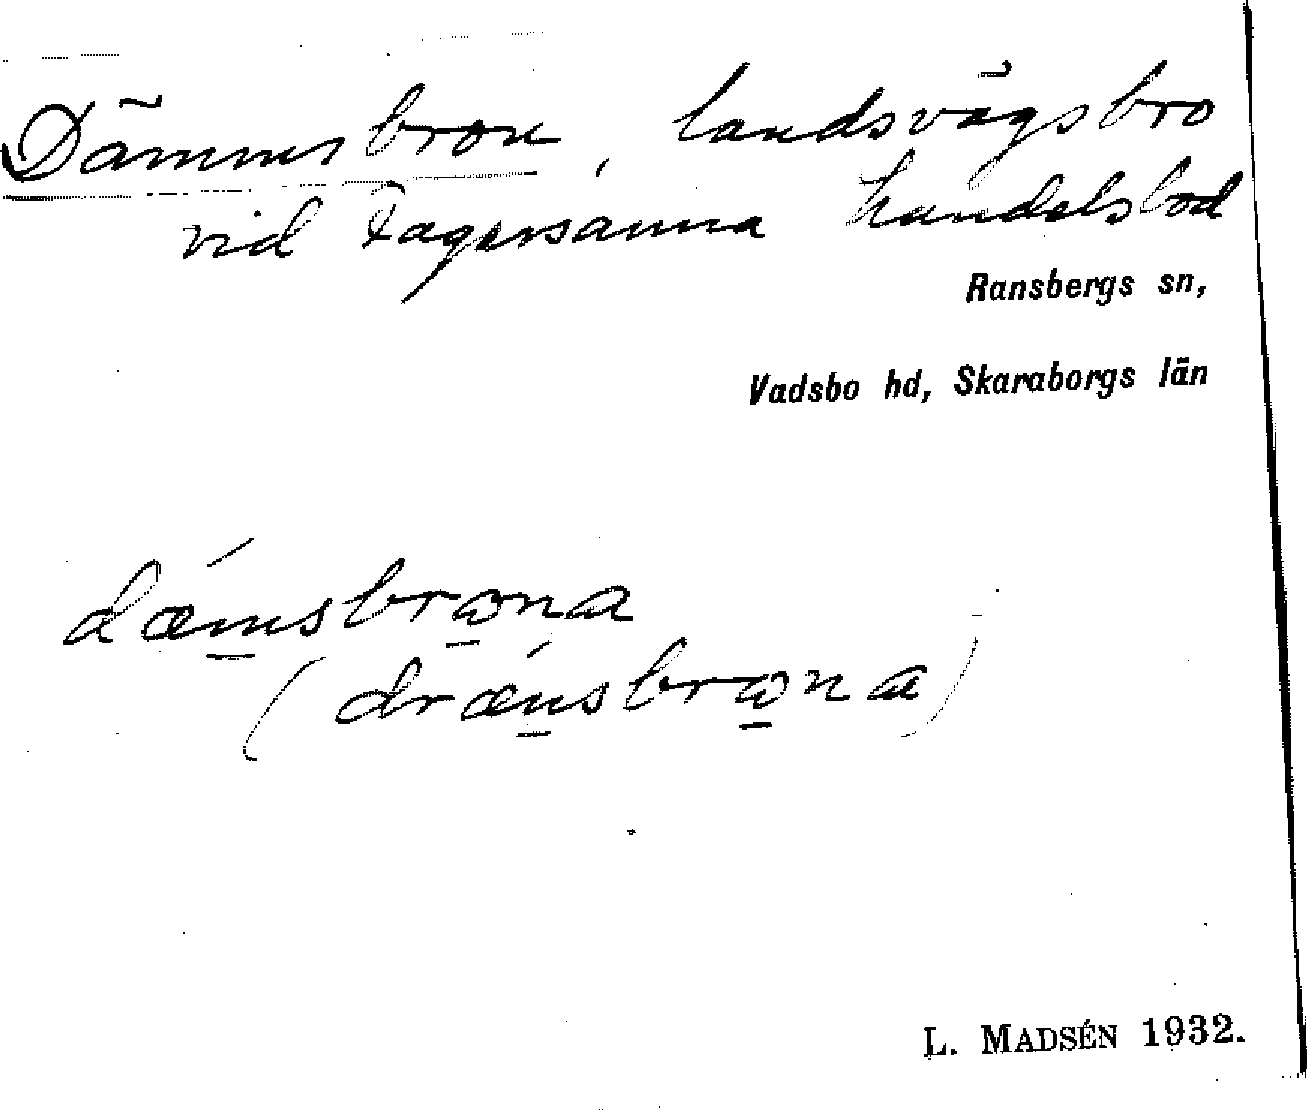 Dämmsbron, landsvägsbro
vid Fagersanna handelsbod
Ransbergs sn,
Vadsbo hd, Skaraborgs län
dǽm̱sbrω̱na
(drǽṉsbrω̱na)
L. MADSÉN 1932.